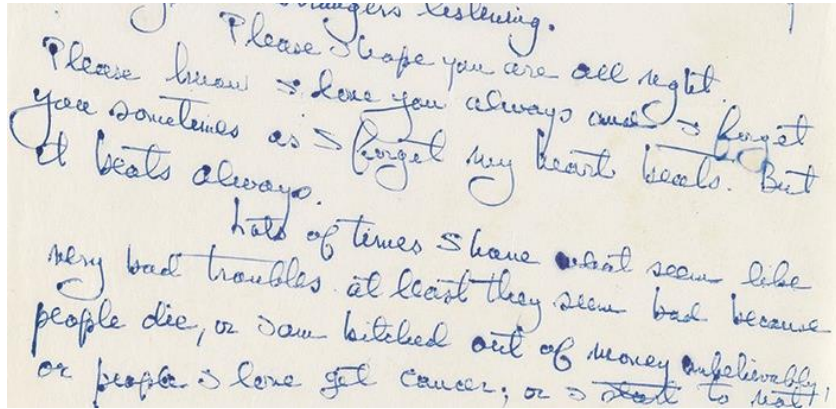 strangers listening.
Please I hope you are all right.
Please know I love you always and I forget
you sometimes as I forget my heart beats. But
it beats always.
Lots of times I have what seem like
very bad troubles at least they seem bad because
people die, or I am bitched out of money unbelievably
or people I love get cancer; or I start to not